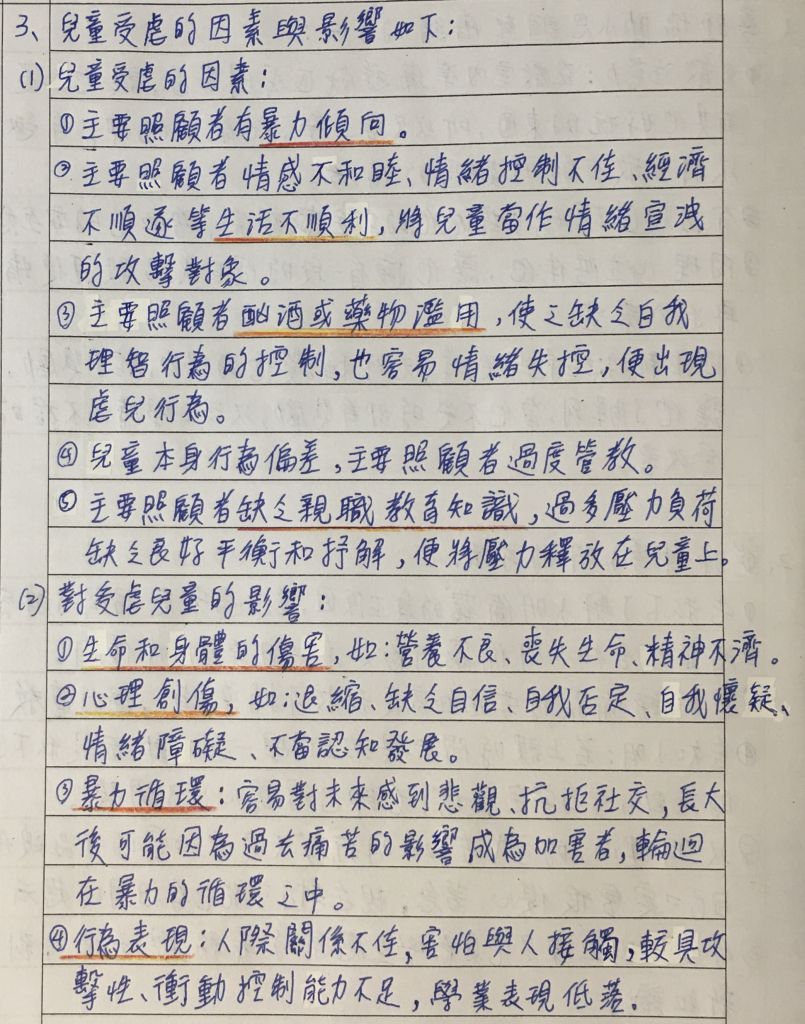 3、兒童受虐的因素與影響如下：
(1)兒童受虐的因素：
①主要照顧者有暴力傾向。
②主要照顧者情感不和睦、情緒控制不佳、經濟
不順遂等生活不順利，將兒童當作情緒宣洩
的攻擊對象。
③主要照顧者酗酒或藥物濫用，使之缺乏自我
理智行為的控制，也容易情緒失控，便出現
虐兒行為。
④兒童本身行為偏差，主要照顧者過度管教。
⑤主要照顧者缺乏親職教育知識，過多壓力負荷
缺乏良好平衡和抒解，便將壓力釋放在兒童上。
(2)對受虐兒童的影響：
①生命和身體的傷害，如：營養不良、喪失生命、精神不濟。
②心理創傷，如：退縮、缺乏自信、自我否定、自我懷疑、
情緒障礙、不當認知發展。
③暴力循環：容易對未來感到悲觀、抗拒社交，長大
後可能因為過去痛苦的影響成為加害者，輪迴
在暴力的循環之中。
④行為表現：人際關係不佳，害怕與人接觸，較具攻
擊性、衝動控制能力不足，學業表現低落。